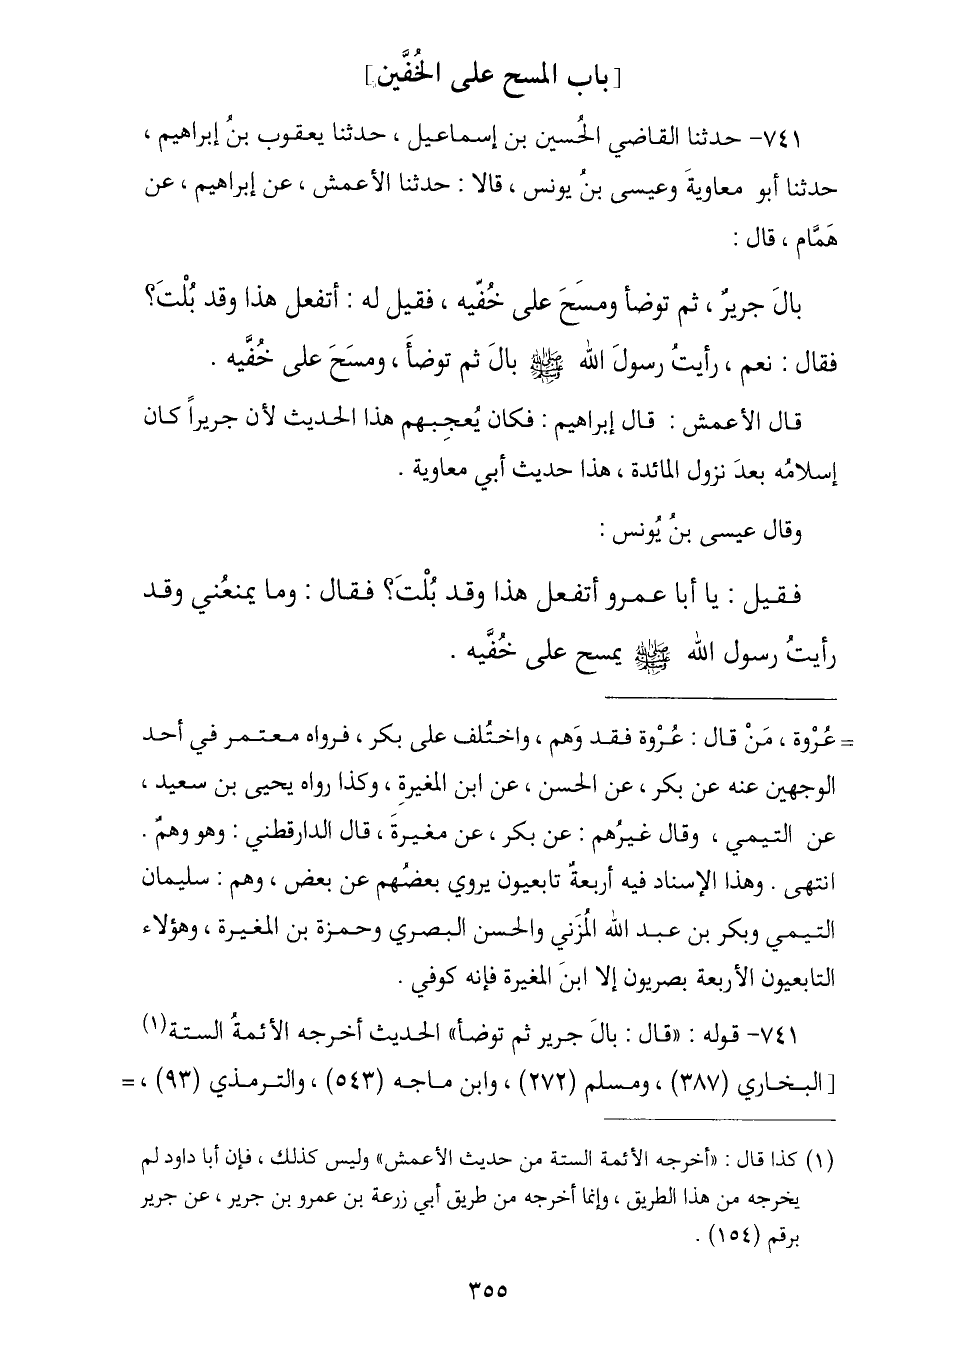 [باب المسح على الخُفَّين]
٧٤١- حدثنا القاضي الحُسين بن إسماعيل ، حدثنا يعقوب بنُ إبراهيم ،
حدثنا أبو معاويةَ وعيسى بنُ يونس ، قالا : حدثنا الأعمش ، عن إبراهيم ، عن
هَمَّام ، قال :
بالَ جريرٌ ، ثم توضأ ومسَحَ على خُفّيه ، فقيل له : أتفعل هذا وقد بُلْتَ؟
فقال : نعم ، رأيتُ رسولَ الله ﷺ بالَ ثم توضأَ ، ومسَحَ على خُفَّيه .
قال الأعمش : قال إبراهيم : فكان يُعجِبهم هذا الحديث لأن جريراً كان
إسلامُه بعدَ نزول المائدة ، هذا حديث أبي معاوية .
وقال عيسى بنُ يُونس :
فقيل : يا أبا عمرو أتفعل هذا وقد بُلْتَ؟ فقال : وما يمنعُني وقد
رأيتُ رسول الله ﷺ يمسح على خُفَّيه .
= عُرْوة ، مَنْ قال : عُرْوة فقد وَهم ، واختُلف على بكر ، فرواه معتمر في أحد
الوجهين عنه عن بكر ، عن الحسن ، عن ابن المغيرةِ ، وكذا رواه يحيى بن سعيد ،
عن التيمي ، وقال غيرُهم : عن بكر ، عن مغيرةَ ، قال الدارقطني : وهو وهمٌ .
انتهى . وهذا الإسناد فيه أربعةٌ تابعيون يروي بعضُهم عن بعض ، وهم : سليمان
التيمي وبكر بن عبد الله المُزَني والحسن البصري وحمزة بن المغيرة ، وهؤلاء
التابعيون الأربعة بصريون إلا ابنَ المغيرة فإنه كوفي .
٧٤١- قوله : «قال : بالَ جرير ثم توضأ» الحديث أخرجه الأئمةُ الستة(١)
[البخاري (٣٨٧) ، ومسلم (٢٧٢) ، وابن ماجه (٥٤٣) ، والترمذي (٩٣) ، =
(١) كذا قال : «أخرجه الأئمة الستة من حديث الأعمش» وليس كذلك ، فإن أبا داود لم
يخرجه من هذا الطريق ، وإنما أخرجه من طريق أبي زرعة بن عمرو بن جرير ، عن جرير
برقم (١٥٤) .
٣٥٥